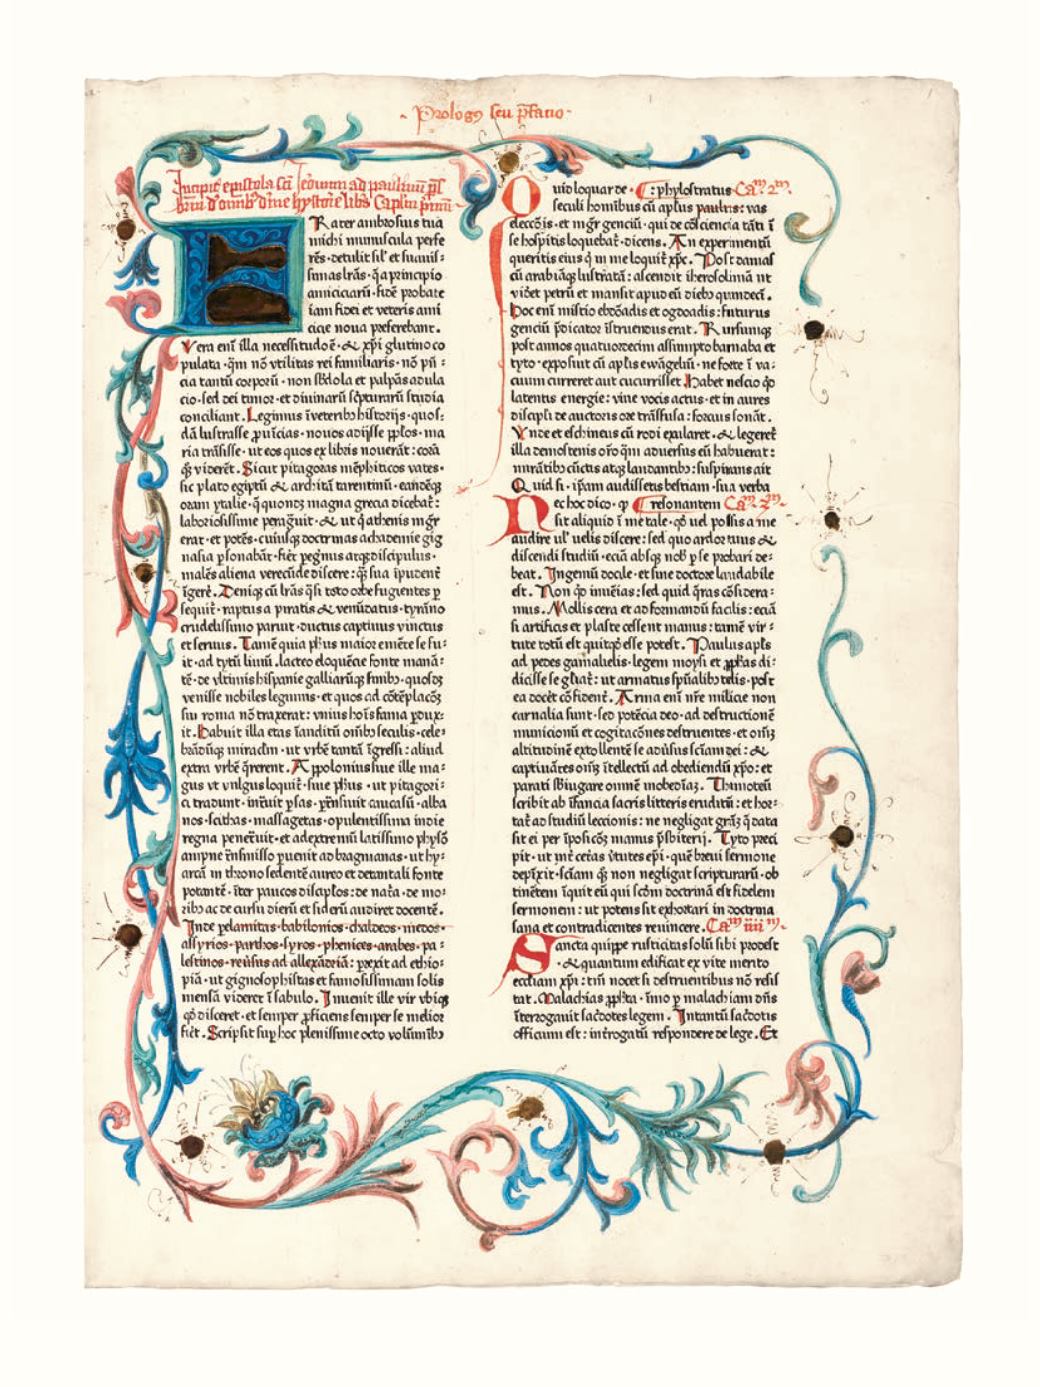 Prologꝯ seu p̄fatio
Incipit epistola scī Jeronimi ad paulinum p̄s
br̄m d̓ omībꝫ diuīe hystorie libꝭ Capl̄m primū
Frater ambrosius tua
michi munuscula perfe
rēs · detulit sil̓ et suauis-
simas lr̄as · q̄ a principio
amiciciarū · fidē probate
iam fidei et veteris ami
cicie noua preferebant.
Vera enī illa necessitudo ē · & xp̄i glutino co
pulata · q̄m nō vtilitas rei familiaris · nō p̄n̄ :
cia tantū corporū · non sb̄dola et palpās adula
cio · sed dei timor · et diuinarū sc̄pturarū studia
conciliant. Legimus ī veteribꝫ historijs · quos:
dā lustrasse ꝓuīcias · nouos adijsse pp̄los · ma
ria trāsisse · ut eos quos ex libris nouerāt : corā
qꝫ viderēt. Sicut pitagoras mēphiticos vates ·
sic plato egiptū & architā tarentinū · eandēqꝫ
oram ytalie · q̄ quondā magna grecia dicebat̄ :
laboriosissime peragͣuit · & ut q̄ athenis mgr̄
erat · et potēs · cuiusqꝫ doctrinas achademie gig
nasia ꝑsonabāt · fier̄ peg̓nus atqꝫ discipulus ·
malēs aliena verecūde discere : qꝫ sua īpudent̄
īgerē. Deniqꝫ cū lr̄as q̄si toto orbe fugientes ꝑ
sequit̄ · raptus a piratis & venūdatus · tyrāno
crudelissimo paruit · ductus captiuus vinctus
et seruus. Tamē quia ph̄us maior emēte se fu-
it · ad tytū liuiū · lacteo eloquēcie fonte manā-
tē · de vltimis hispanie galliarūqꝫ finibꝫ · quosdꝫ
venisse nobiles legimus · et quos ad cōtēplacōꝫ
sui roma nō traxerat : vnius hoīs fama ꝑdux-
it. Habuit illa etas īanditū oīnibꝫ seculis · cele-
brādūqꝫ miraclm̄ · ut vrbē tantā īgressi : aliud
extra vrbē q̄rerent. Appolonius siue ille ma-
gus vt vulgus loquit̄ · siue ph̄us · ut pitagori-
ci tradunt · īntͣuit ꝑsas · ꝑtrāsiuit caucasū · alba
nos · scithas · massagetas · opulentissima indie
regna penetͣuit · et ad extremū latissimo physō
ampne trāsmisso ꝑuenit ad bragmanas · ut hy-
arcā in throno sedentē aureo et de tantali fonte
potantē · īter paucos discip̄los : de nat̄a · de mo-
ribꝫ ac de cursu dierū et siderū audiret docentē.
Inde ꝑ elamitas · babilonios · chaldeos · medos ·
assyrios · parthos · syros · phenices · arabes · pa-
lestinos · reūsus ad allexādriā : ꝑrexit ad ethio-
piā · ut gignosophistas et famosissimam solis
mensā videret ī sabulo. Inuenit ille vir vbiqꝫ
qd̓ disceret · et semper ꝓficiens semper se melior
fiēt. Scripsit suꝑ hoc plenissime octo volūmībꝫ
phylostratus Caᵐ 2ᵐ
Quid loquar de
seculi hoībus cū ap̄lus paulus : vas
eleccōis · et mgr̄ genciū · qui de cōsciencia tāti ī
se hospitis loquebat̄ · dicens. An experimentū
queritis eius q̓ in me loquit̄ xp̄c. Post damas
cū arabiāqꝫ lustratā : ascendit iherosolimā ut
vidēt petrū et mansit apud eū diebꝫ quindecī.
Hoc enī mistio ebdōadis et ogdoadis : futurus
genciū p̄dicator īstruendus erat. Rursumqꝫ
post annos quatuordecim assumpto barnaba et
tyto · exposuit cū ap̄lis ewāgeliū · ne forte ī va-
cuum curreret aut cucurrisset Habet nescio q̓o
latentis energie : viue vocis actus · et in aures
discip̄li de auctoris ore trāsfusa : forcius sonāt.
Vnde et eschineus cū rodi exularet · & legeret̄
illa demostenis or̄o q̄m aduersus eū habuerat :
mirātibꝫ cūctis atqꝫ laudantibꝫ : suspirans ait
Quid si · ip̄am audissetis bestiam · sua verba
resonantem Caᵐ 3ᵐ
Nec hoc dico · ꝙ
sit aliquid ī me tale · qd̓ uel possis a me
audire ul̓ uelis discere : sed quo ardor tuus &
discendi studiū · eciā absqꝫ nob̓ ꝑ se probari de-
beat. Ingeniū docile · et sine doctore laudabile
est. Non qd̓ inuēias : sed quid q̄ras cōsidera-
mus. Mollis cera et ad formandū facilis : eciā
si artificis et plaste cessent manus : tamē vir-
tute totū est quitqd̓ esse potest. Paulus ap̄ls
ad pedes gamalielis · legem moysi et ꝓph̄as di-
dicisse se gl̄iat̄ : ut armatus sp̄ualibꝫ telis · post
ea docēt cōfident̄. Arma enī nr̄e milicie non
carnalia sunt · sed potēcia deo · ad destructionē
municionū et cogitacōnes destruentes · et om̄ꝫ
altitudinē extollentē se adūsus sciam dei : &
captiuātes om̄ꝫ ītellectū ad obediendū xp̄o : et
parati sb̄iugare omnē inobediaꝫ. Thimoteū
scribit ab īfancia sacris litteris eruditū : et hor-
tat̄ ad studiū leccionis : ne negligat gr̄aꝫ q̄ data
sit ei per īposicōꝫ manus p̄sbiterij. Tyto preci
pit · ut īnt̄ cet̄as v̓tutes ep̄i · quē breui sermone
depīxit · sciam qꝫ non negligat scripturarū · ob
tinētem īquit eū qui scd̄m doctrinā est fidelem
sermonem : ut potens sit exhortari in doctrina
sana et contradicentes reuincere. Caᵐ iiiiᵐ
Sancta quippe rusticitas solū sibi prodest
& quantum edificat ex vite merito
eccl̄iam xp̄i : tm̄ nocet si destruentibus nō resis
tat. Malachias ꝓph̄ta · īmo ꝑ malachiam dn̄s
īterrogauit sac̄dotes legem. Intantū sac̄dotis
officium est : intͣrogatū respondere de lege. Et